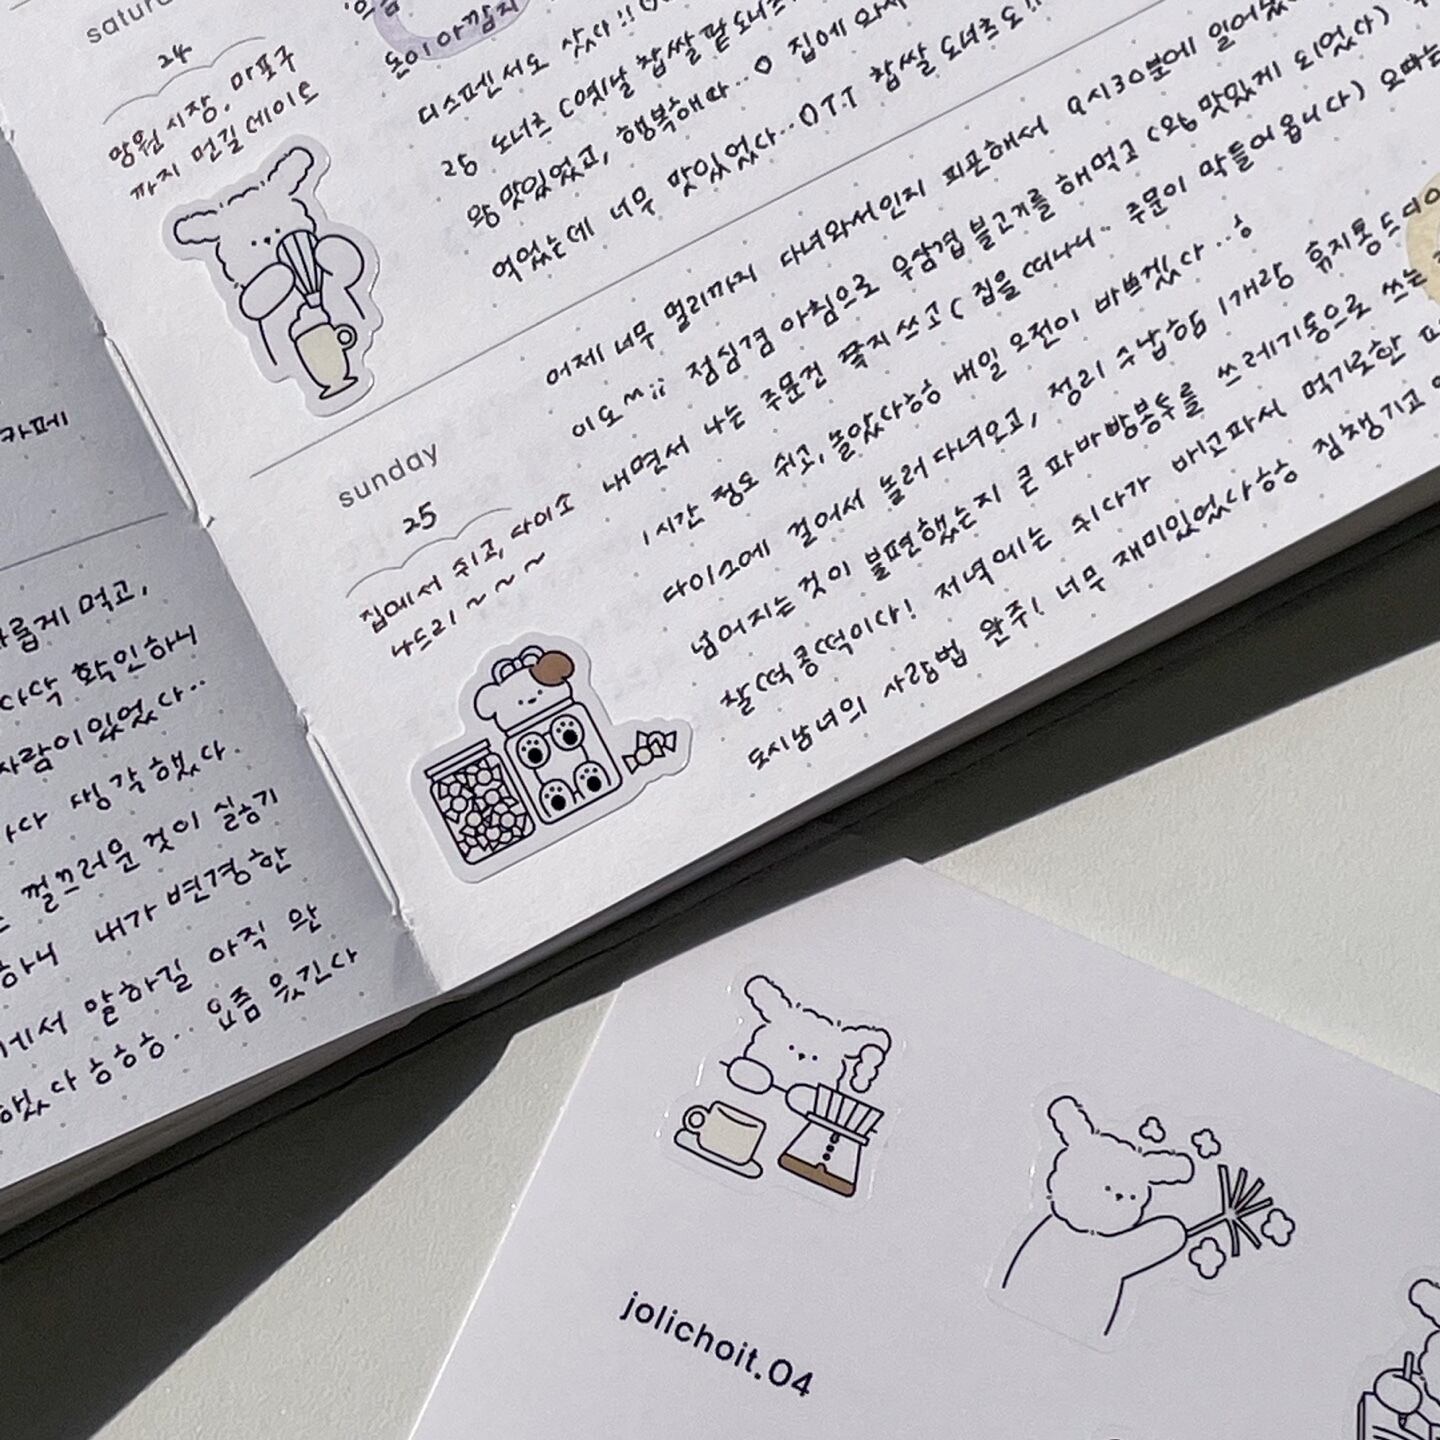 카페
게 먹고,
확인하니
사람이 있었다..
생각했다
껄끄러운 것이 싫기
하니 내가 변경한
에서 말하길 아직 안
했다 ㅎㅎㅎ.. 요즘 웃긴다
24
망원시장, 마포구
까지 먼길 데이트
돈이 아깝지
디스펜서도 샀다!!
25 도너츠 (옛날 찹쌀 팥 도너츠
왕 맛있었고, 행복해따..♡ 집에 와서
먹었는데 너무 맛있었다..ㅇTT 찹쌀 도너츠도!!
sunday
25
집에서 쉬고, 다이소
나드리 ~ ~ ~
어제 너무 멀리까지 다녀와서인지 피곤해서 9시30분에
점심겸 아침으로 우삼겹 불고기를 해먹고 맛있게 되었다)
내면서 나는 주문건 쭉지 쓰고( 집을 떠나니.. 주문이 막 들어옵니다) 오빠는
1시간 정도 쉬고, 놀았다ㅎㅎ 내일 오전이 바쁘겠다..ㅎ
다이소에 걸어서 놀러 다녀오고, 정리 수납함 1개랑 휴지통
넘어지는 것이 불편했는지 큰 파바빵봉투를 쓰레기통으로 쓰는
찰떡콩떡이다! 저녁에는 쉬다가 배고파서 먹기로한
도시남녀의 사랑법 완주! 너무 재미있었다ㅎㅎ 짐 챙기고
jolichoit.04